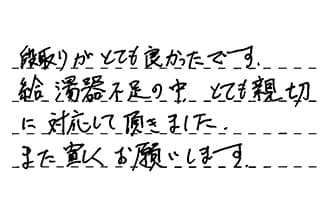 段取りがとても良かったです.
給湯器不足の中 とても親切
に対応して頂きました.
また宜しくお願いします.